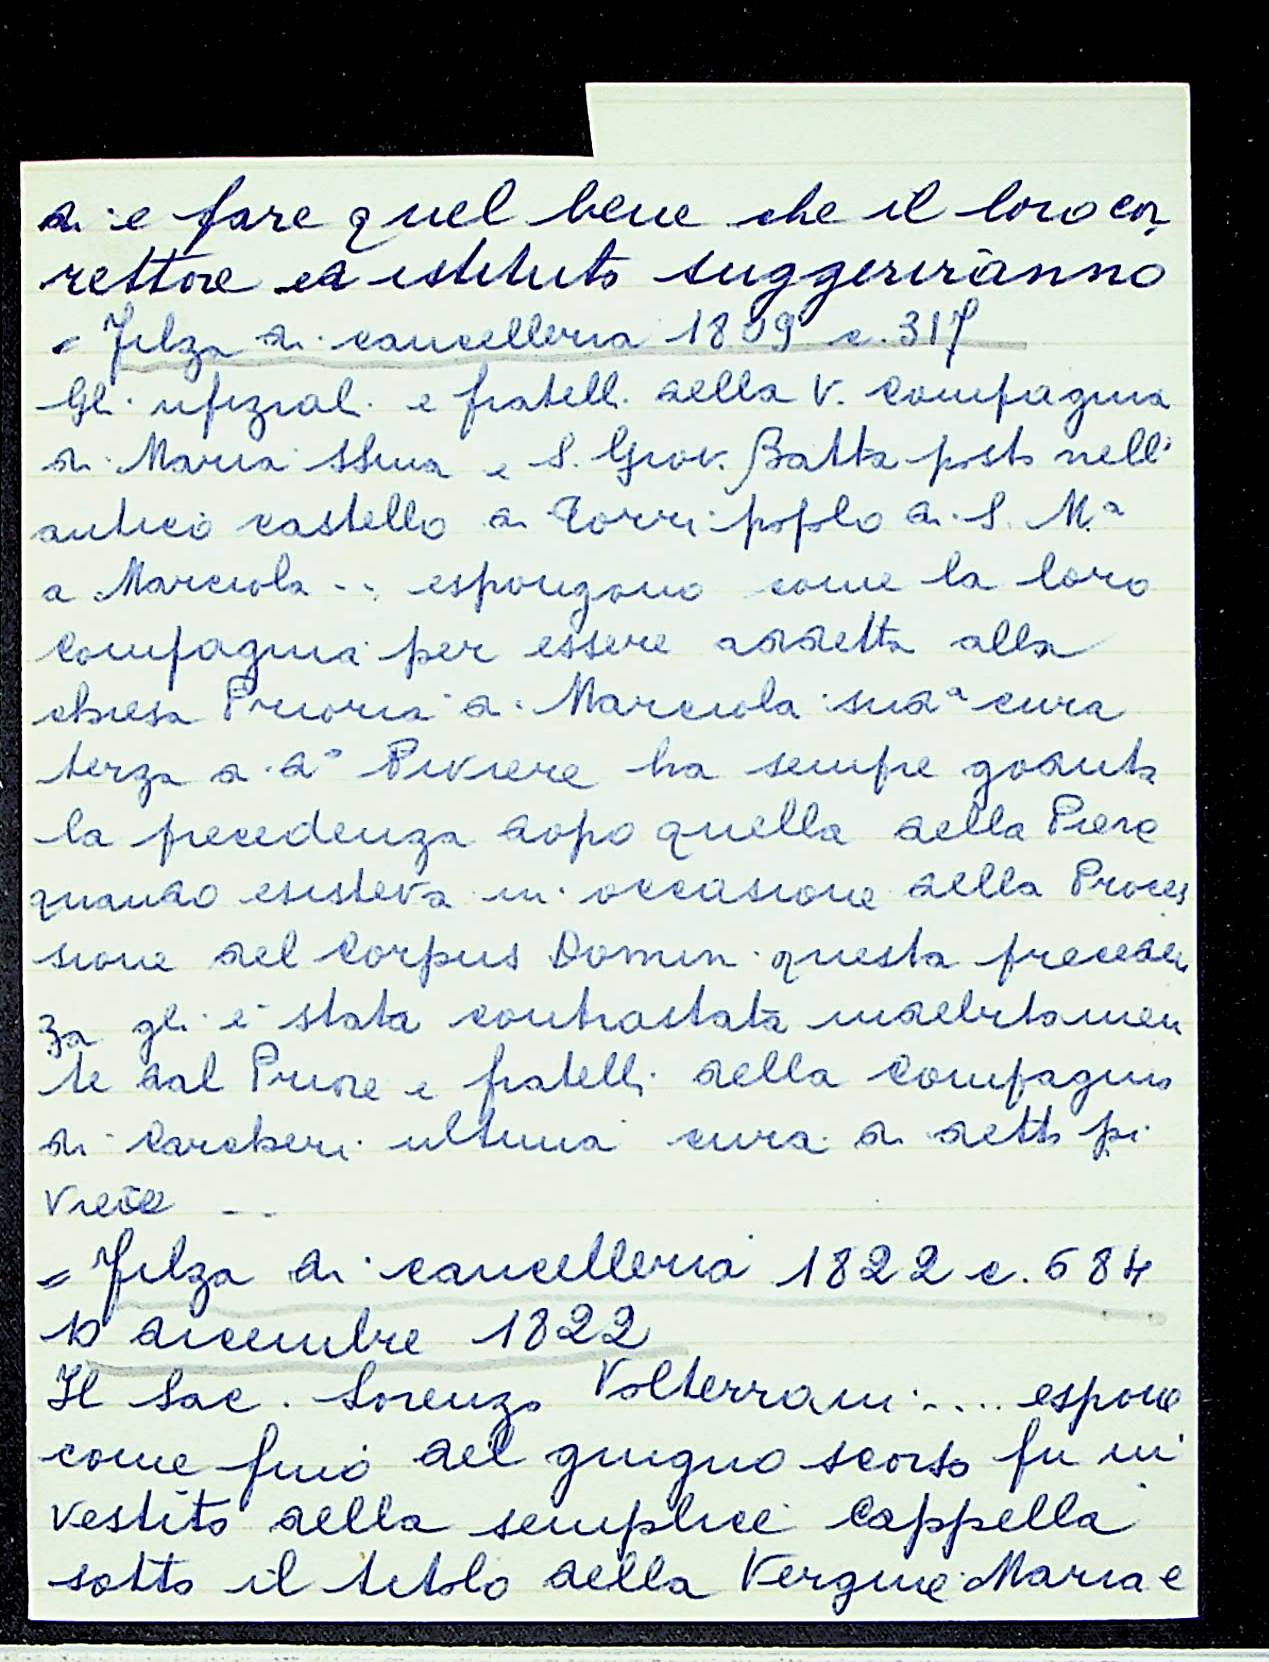 di e fare quel bene che il loro cor
rettore ed istituto suggeriranno
= Filza di cancelleria 1809 c. 317
Gli ufiziali e fratelli della V. Compagnia
di Maria SSma e S. Giov. Batta posta nell'
antico castello di Torri popolo di S. M.a
a Marciola -- espongono come la loro
compagnia per essere addetta alla
chiesa Prioria di Marciola sudª cura
terza di dº Piviere ha sempre goduta
la precedenza dopo quella della Pieve
quando esisteva in occasione della Proces
sione del Corpus Domini questa preceden
za gli è stata contrastata indebitamen
te dal Priore e fratelli della Compagnia
di Carcheri ultima cura di detto pi
viere --
= Filza di cancelleria 1822 c. 684
10 dicembre 1822
Il Sac. Lorenzo Volterrani .... espone
come fino del giugno scorso fu in
vestito della semplice Cappella
sotto il titolo della Vergine Maria e